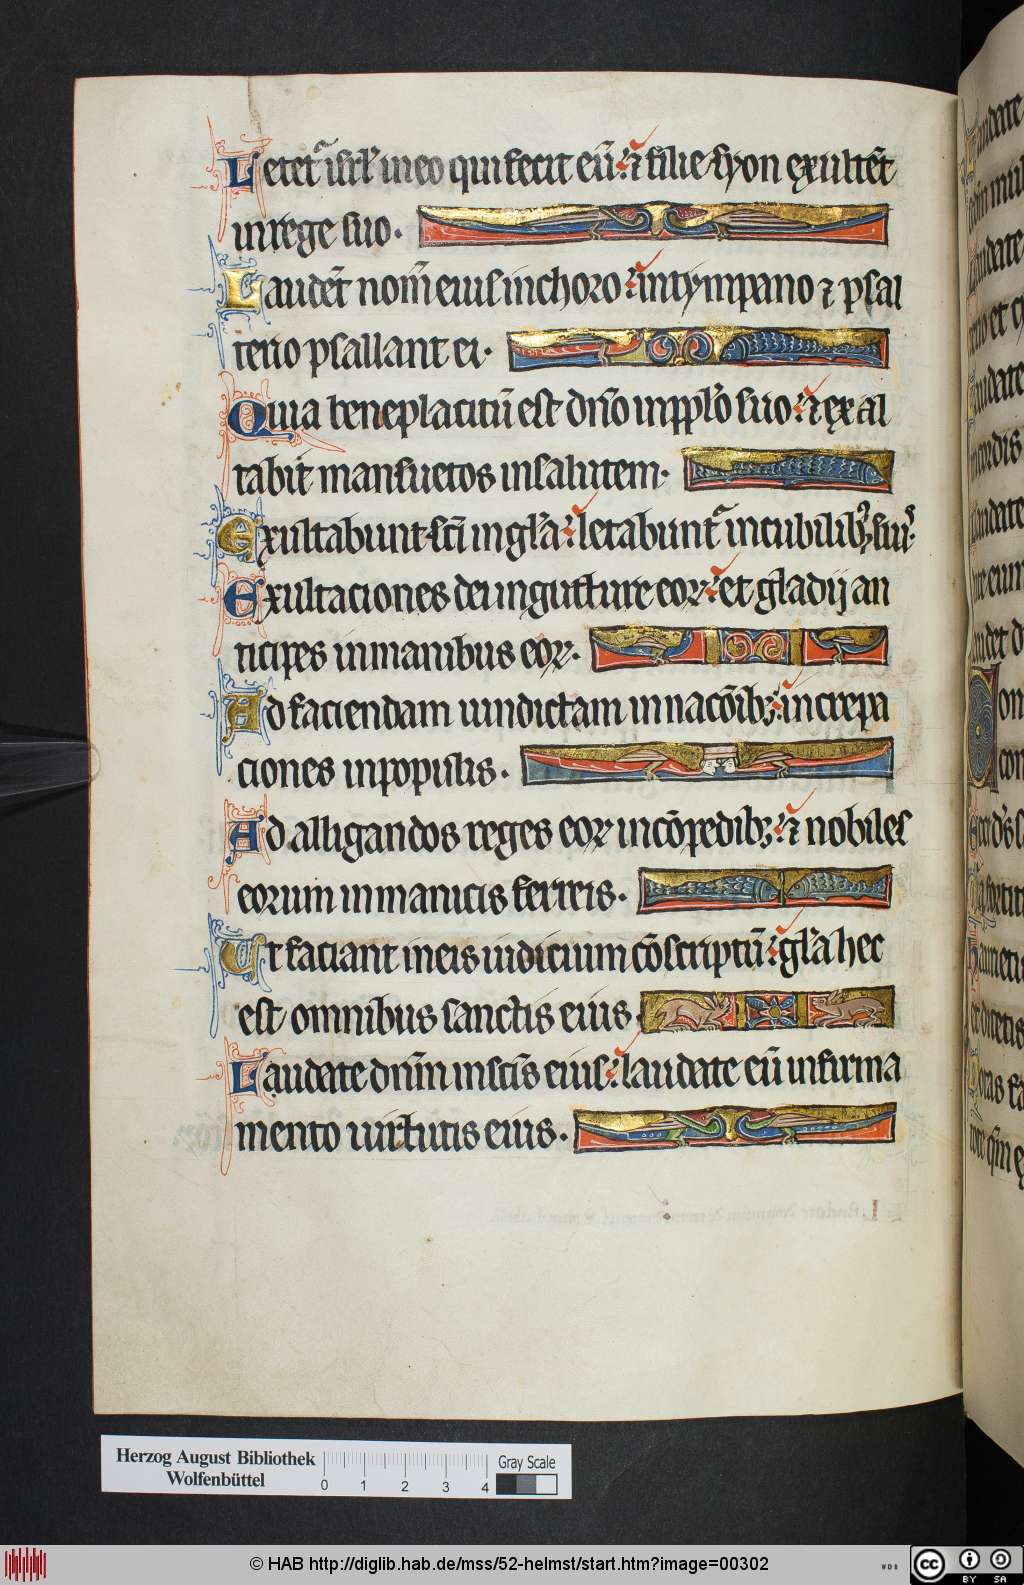 Letet᷑ isrl̄ in eo qui fecit eū ⁊ filie syon exultēt
in rege suo.
Laudēt nom̄ eius in choro in tympano ⁊ psal
terio psallant ei.
Quia beneplacitū est dn̄o in pp̄lo suo ⁊ exal
tabit mansuetos in salutem.
Exultabunt sc̄i in gl̄a letabunt᷑ in cubilibꝫ suis.
Exultaciones dei in gutture eoꝝ et gladij an
cipites in manibus eoꝝ.
Ad faciendam uindictam in nacōibꝫ increpa
ciones in populis.
Ad alligandos reges eoꝝ in cōpedibꝫ ⁊ nobiles
eorum in manicis ferreis.
Ut faciant in eis iudicium cōscriptū gl̄a hec
est omnibus sanctis eius.
Laudate dn̄m in sc̄is eius laudate eū in firma
mento uirtutis eius.
Herzog August Bibliothek
Wolfenbüttel
0 1 2 3 4
Gray Scale
© HAB http://diglib.hab.de/mss/52-helmst/start.htm?image=00302
WDB
cc BY SA